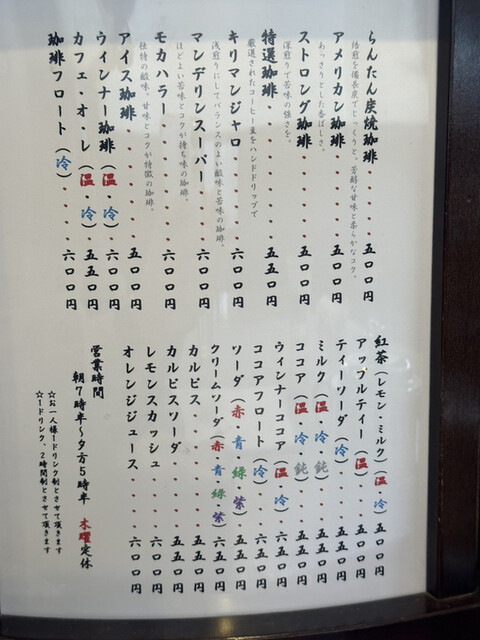 らんたん炭焼珈琲・・・・五五〇円
焙煎を備長炭でじっくりと。芳醇な甘味と柔らかなコク。
アメリカン珈琲・・・・・五〇〇円
あっさりとした香ばしさ。
ストロング珈琲・・・・・五〇〇円
深煎りで苦味の強さを。
特選珈琲・・・・・・・・五五〇円
厳選されたコーヒー豆をハンドドリップで
キリマンジャロ・・・・・六〇〇円
浅煎りにしてバランスのよい酸味と苦味の珈琲。
マンデリンスーパー・・・六〇〇円
ほどよい苦味とコクが持ち味の珈琲。
モカハラー・・・・・・・六〇〇円
独特の酸味、甘味とコクが特徴の珈琲。
アイス珈琲・・・・・・・五〇〇円
ウィンナー珈琲（温・冷）・六〇〇円
カフェ・オ・レ（温・冷）・五五〇円
珈琲フロート（冷）・・・・六〇〇円
紅茶（レモン・ミルク）（温・冷）五〇〇円
アップルティー（温）・・・五五〇円
ティーソーダ（冷）・・・・五五〇円
ミルク（温・冷・鈍）・・・五〇〇円
ココア（温・冷・鈍）・・・五五〇円
ウィンナーココア（温・冷）六五〇円
ココアフロート（冷）・・・六五〇円
ソーダ（赤・青・緑・紫）・五五〇円
クリームソーダ（赤・青・緑・紫）六五〇円
カルピス・・・・・・・・五五〇円
カルピスソーダ・・・・・五五〇円
レモンスカッシュ・・・・六〇〇円
オレンジジュース・・・・六〇〇円
営業時間
朝7時半〜夕方5時半 木曜定休
☆お一人様1ドリンク制とさせて頂きます
☆1ドリンク、2時間制とさせて頂きます